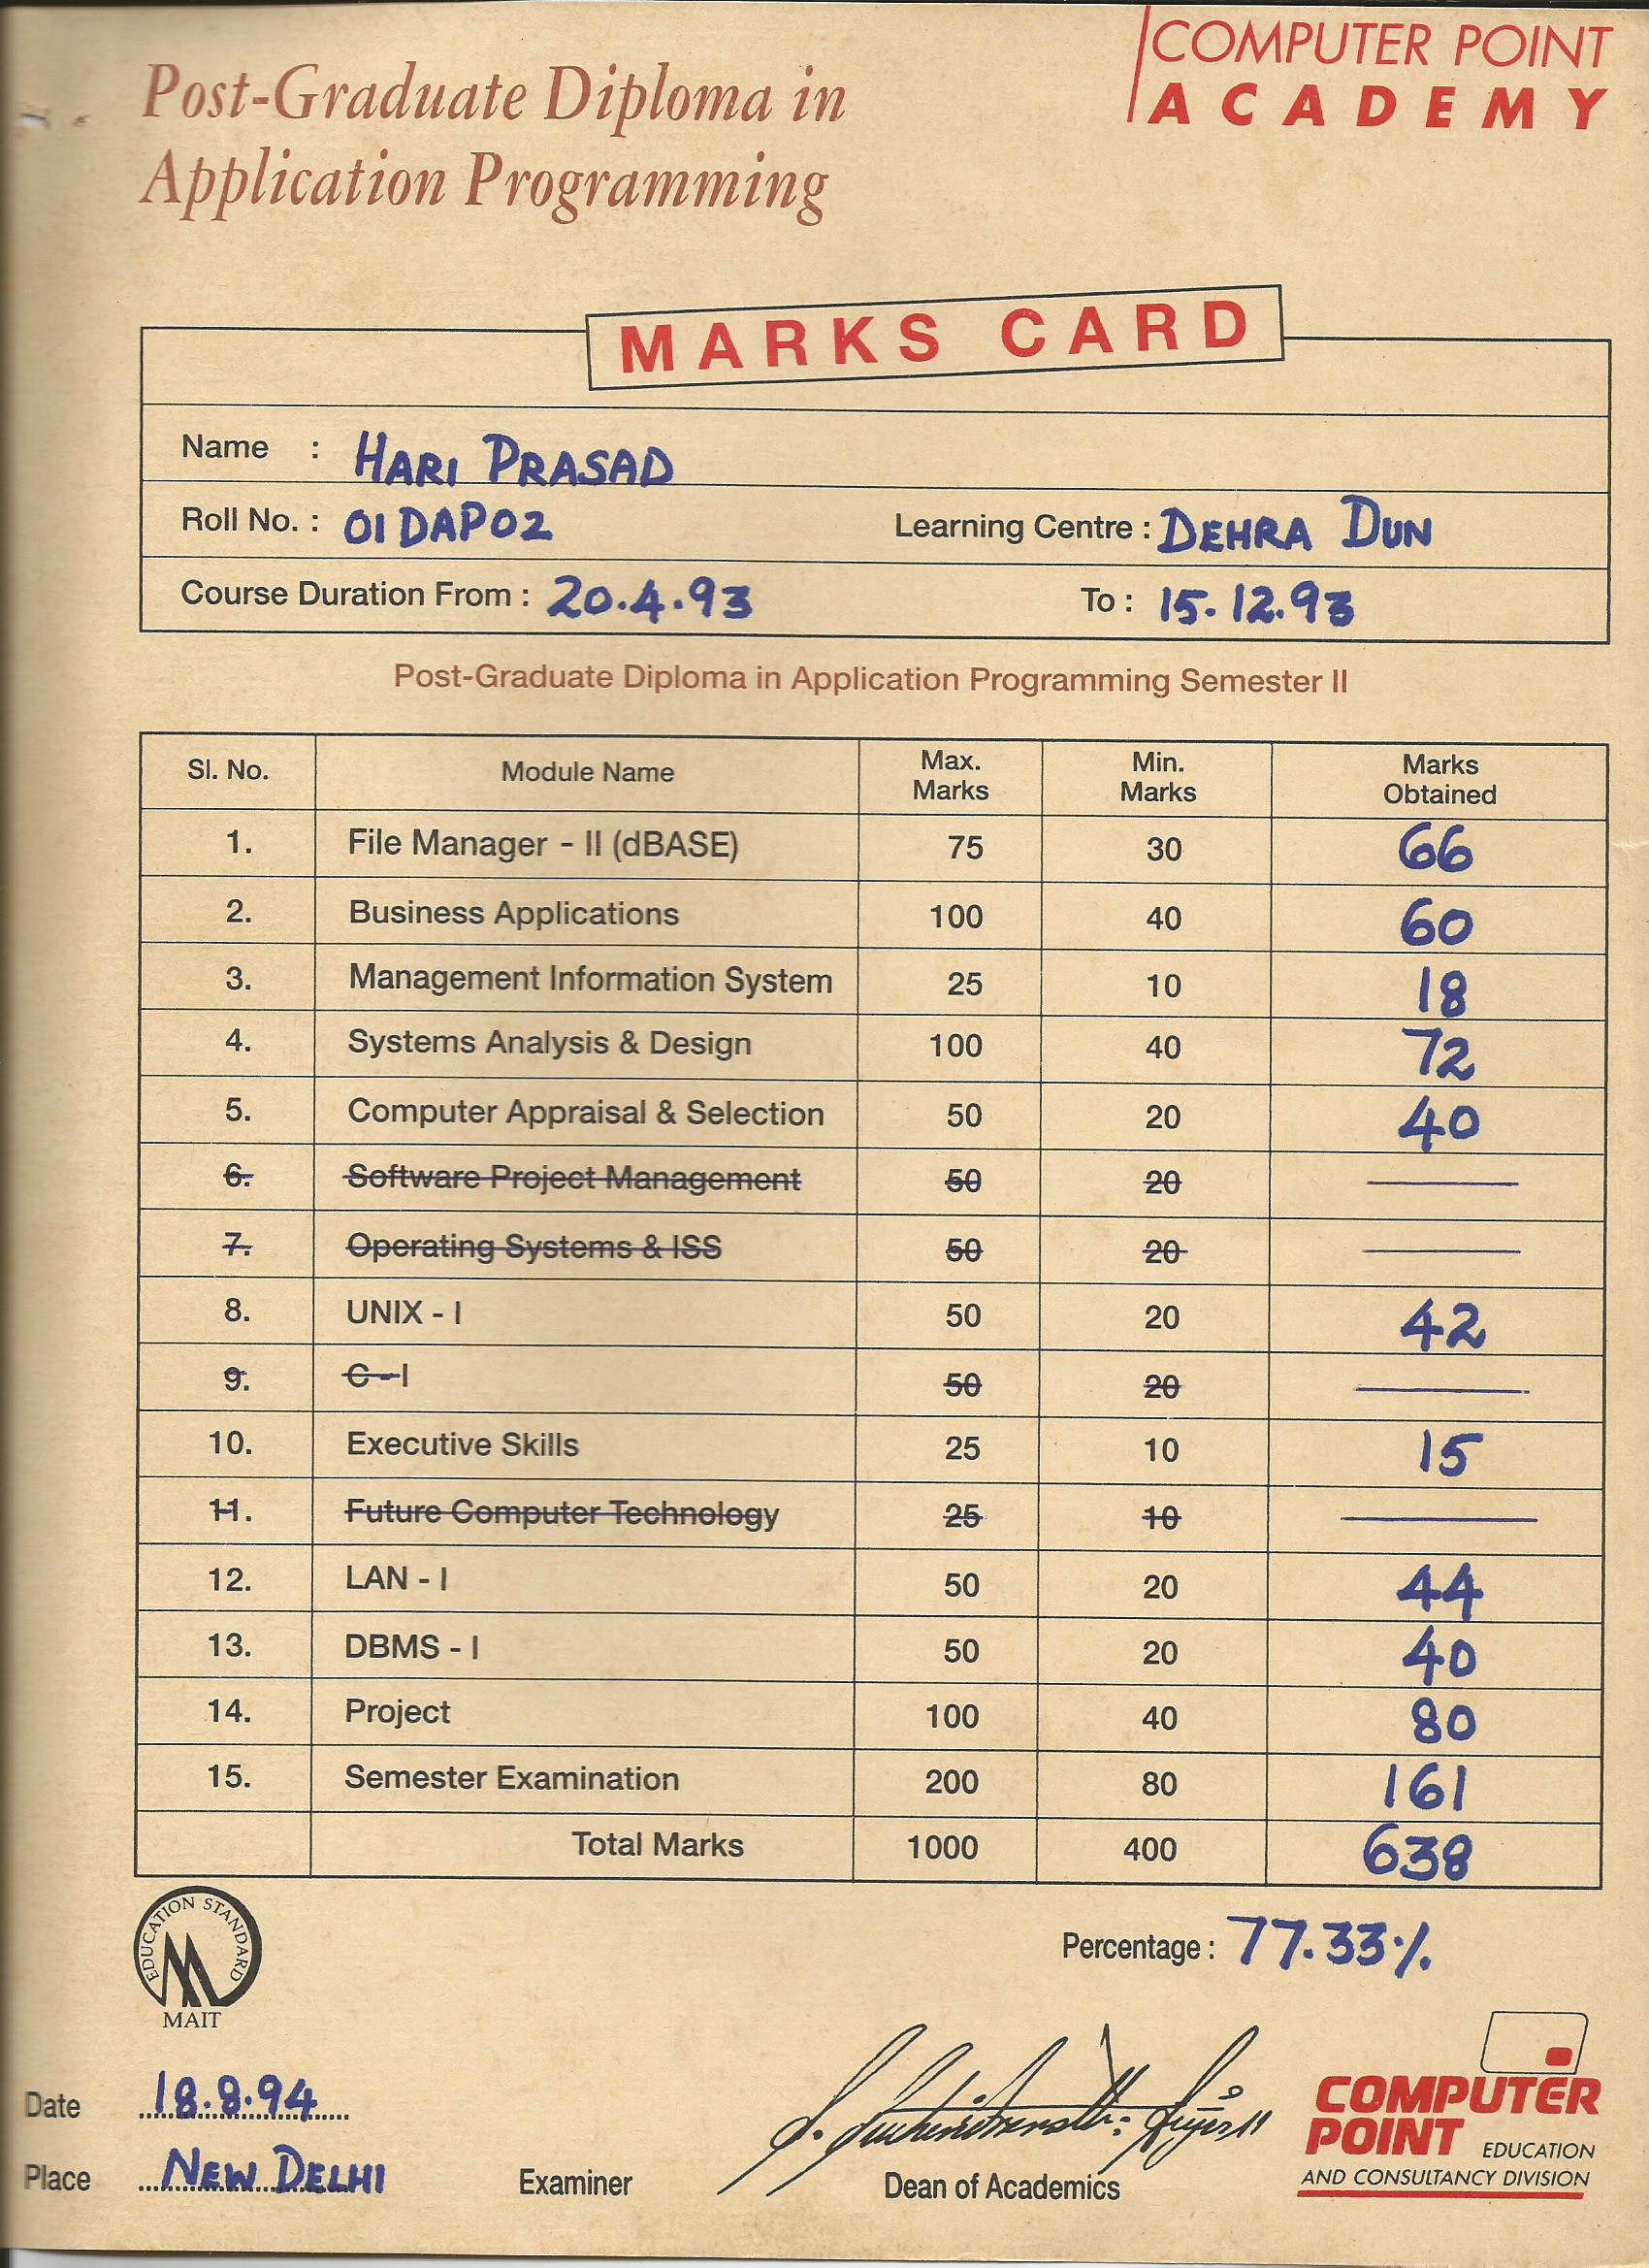 COMPUTER POINT
ACADEMY
Post-Graduate Diploma in
Application Programming
MARKS CARD
Name : HARI PRASAD
Roll No. : 01DAP02 Learning Centre : DEHRA DUN
Course Duration From : 20.4.93 To : 15.12.93
Post-Graduate Diploma in Application Programming Semester II
Sl. No. Module Name Max. Marks Min. Marks Marks Obtained
1. File Manager - II (dBASE) 75 30 66
2. Business Applications 100 40 60
3. Management Information System 25 10 18
4. Systems Analysis & Design 100 40 72
5. Computer Appraisal & Selection 50 20 40
6. Software Project Management 50 20
7. Operating Systems & ISS 50 20
8. UNIX - I 50 20 42
9. C - I 50 20
10. Executive Skills 25 10 15
11. Future Computer Technology 25 10
12. LAN - I 50 20 44
13. DBMS - I 50 20 40
14. Project 100 40 80
15. Semester Examination 200 80 161
Total Marks 1000 400 638
EDUCATION STANDARD
MAIT
Percentage : 77.33%
Date 18.8.94
Place NEW DELHI
Examiner
Dean of Academics
COMPUTER
POINT EDUCATION
AND CONSULTANCY DIVISION